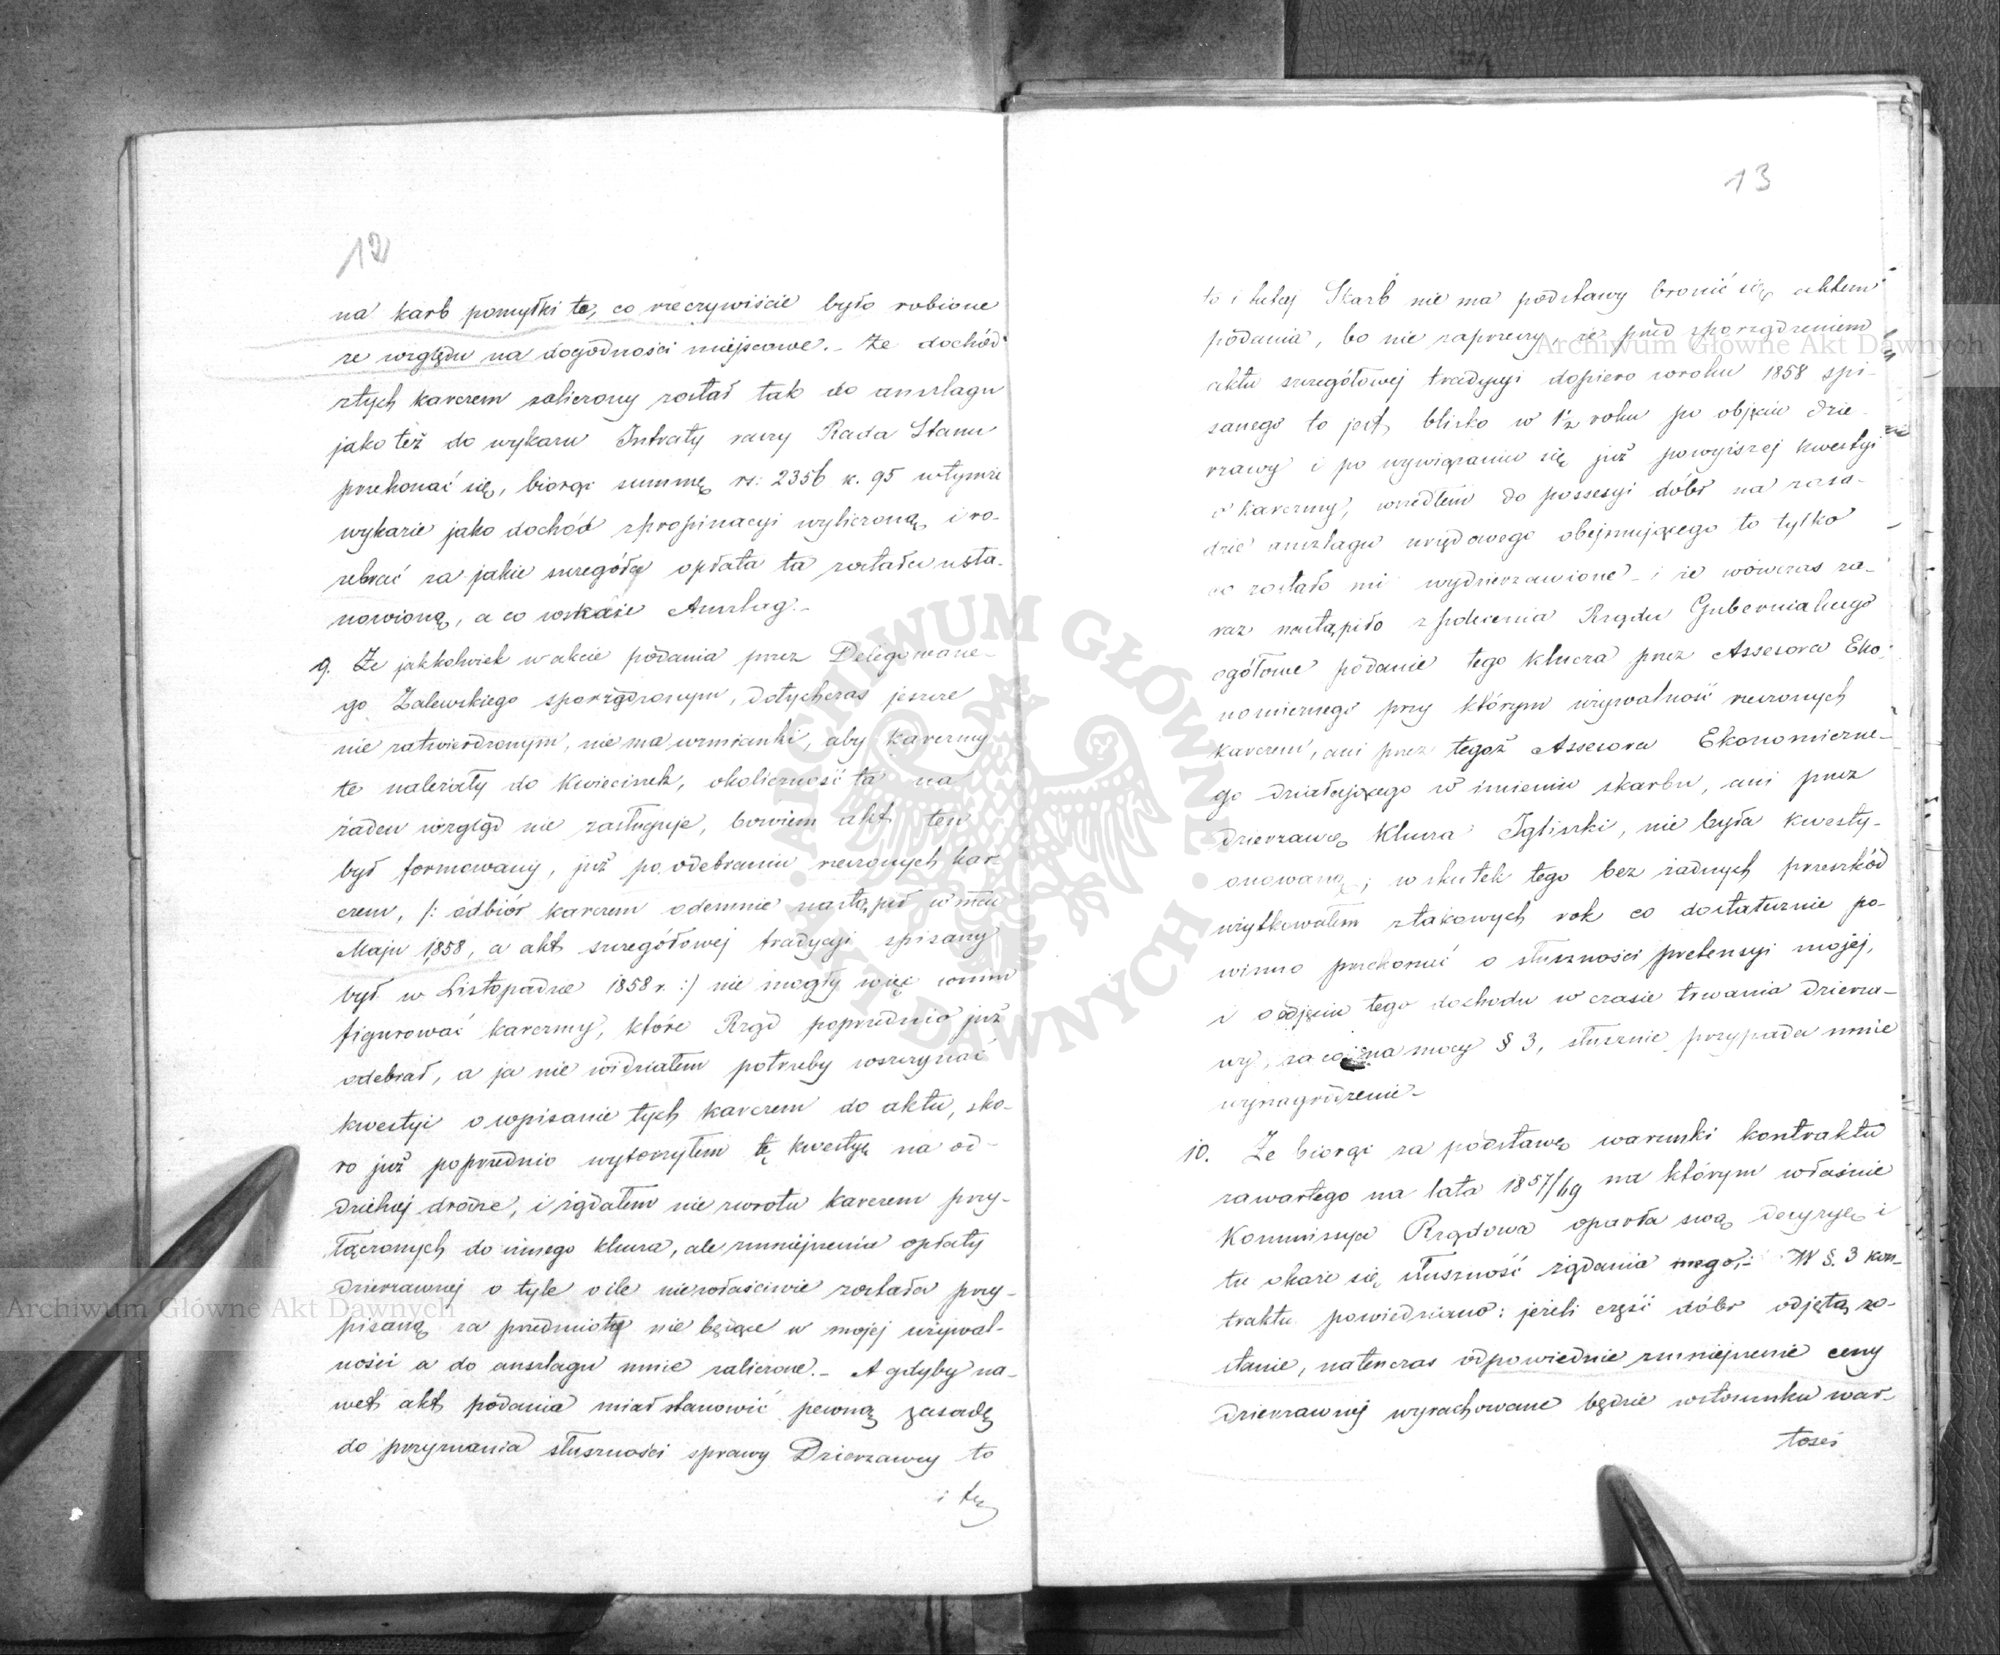 12
na karb pomyłki te, co rzeczywiście było robione
ze względu na dogodności miejscowe. – Że dochód
z tych karczem zaliczony został tak do anszlagu
jako też do wykazu Intraty raczy Rada Stanu
przekonać się, biorąc summę rs: 2356 k. 95 w tymże
wykazie jako dochód z propinacyi wyliczoną i ro-
zebrać za jakie szczegóły opłata ta została usta-
nowioną, a co wskaże Anszlag. –
9. Że jakkolwiek w akcie podania przez Delegowane-
go Zalewskiego sporządzonym, dotychczas jeszcze
nie zatwierdzonym, nie ma wzmianki, aby karczmy
te należały do Kwiecinek, okoliczność ta na
żaden wzgląd nie zasługuje, bowiem akt ten
był formowany, już po odebraniu rzeczonych kar-
czem, /: odbiór karczem odemnie nastąpił w mcu
Maju 1858, a akt szczegółowej tradycyi spisany
był w Listopadzie 1858 r. :/ nie mogły więc w nim
figurować karczmy, które Rząd poprzednio już
odebrał, a ja nie widziałem potrzeby wszczynać
kwestyi o wpisanie tych karczem do aktu, sko-
ro już poprzednio wytoczyłem tę kwestyą na od-
dzielnej drodze, i żądałem nie zwrotu karczem przy-
łączonych do innego klucza, ale zmniejszenia opłaty
dzierżawnej o tyle o ile niewłaściwie została przy-
pisaną za przedmioty nie będące w mojej używal-
ności a do anszlagu mnie zaliczone. – A gdyby na-
wet akt podania miał stanowić pewną zasadę
do przyznania słuszności sprawy Dzierżawcy to
i tu
13
to i tutaj Skarb nie ma podstawy bronić się aktem
podania, bo nie zaprzeczy, że przed sporządzeniem
aktu szczegółowej tradycyi dopiero w roku 1858 spi-
sanego to jest, blisko w 1½ roku po objęciu dzie-
rżawy i po wywiązaniu się już powyższej kwestyi
o karczmy, wszedłem do possesyi dóbr na zasa-
dzie anszlagu urzędowego obejmującego to tylko
co zostało mi wydzierżawione – i że wówczas za-
raz nastąpiło z polecenia Rządu Gubernialnego
ogółowe podanie tego klucza przez Assesora Eko-
nomicznego przy którym używalność rzeczonych
karczem, ani przez tegoż Assesora Ekonomiczne-
go działającego w imieniu skarbu, ani przez
dzierżawcę klucza Igliszki, nie była kwesty-
onowaną; w skutek tego bez żadnych przeszkód
użytkowałem z takowych rok co dostatecznie po-
winno przekonać o słuszności pretensyi mojej,
i o odjęciu tego dochodu w czasie trwania dzierża-
wy, za co na mocy § 3, słusznie przypada mnie
wynagrodzenie –
10. Że biorąc za podstawę warunki kontraktu
zawartego na lata 1857/69 na którym właśnie
Kommissya Rządowa oparła swą decyzyę i
tu okaże się słuszność żądania mego: W §. 3 kon-
traktu powiedziano: jeżeli część dóbr odjętą zo-
stanie, natenczas odpowiednie zmniejszenie ceny
dzierżawnej wyrachowane będzie w stosunku war-
tości
Archiwum Główne Akt Dawnych
Archiwum Główne Akt Dawnych
ARCHIWUM GŁÓWNE AKT DAWNYCH